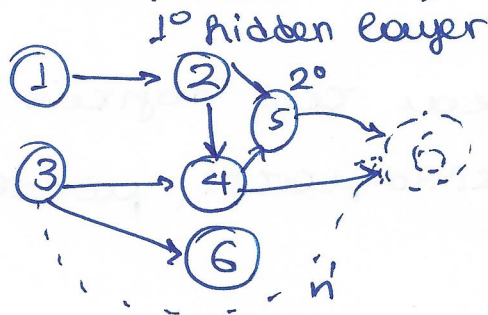 1° hidden layer
1 2 2°
5
3 4
6
n